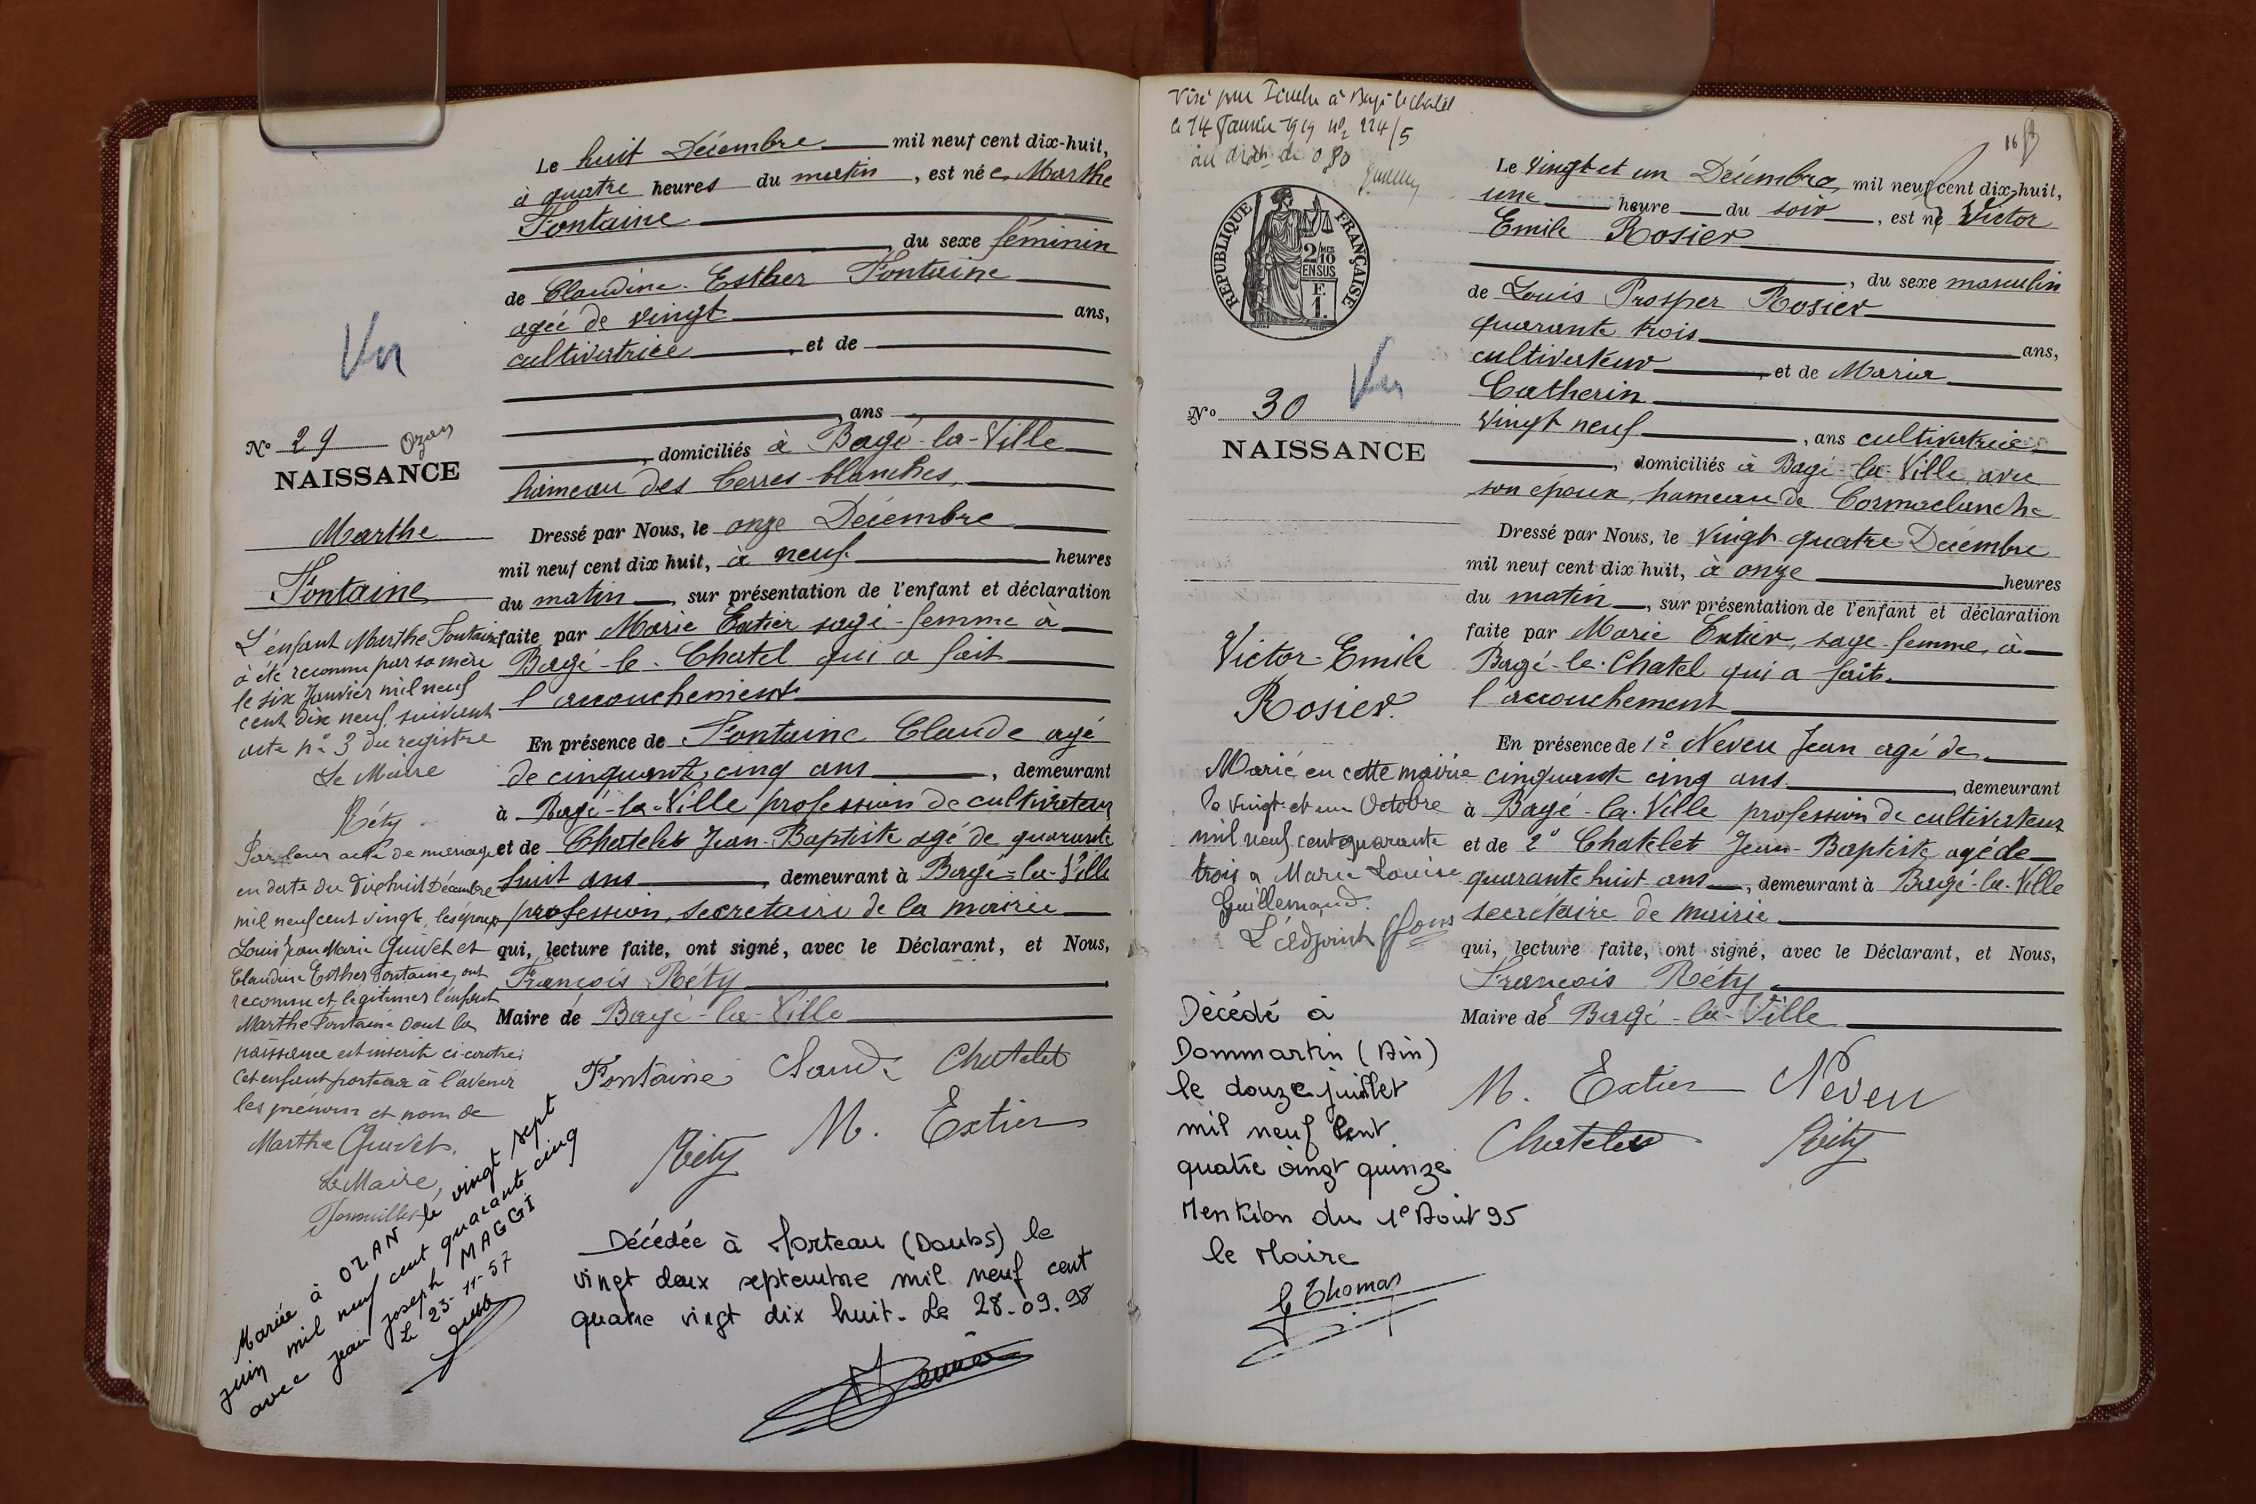 Le huit Décembre mil neuf cent dix-huit,
à quatre heures du matin, est née Marthe
Fontaine
, du sexe féminin
de Claudine Esther Fontaine
agée de vingt ans,
cultivatrice, et de
, ans
, domiciliés à Bagé-la-Ville
hameau des Terres blanches,
Vu
N° 29 Ozan
NAISSANCE
Marthe
Fontaine
Dressé par Nous, le onze Décembre
mil neuf cent dix huit, à neuf heures
du matin, sur présentation de l'enfant et déclaration
faite par Marie Extier sage-femme à
Bagé-le-Chatel qui a fait
l'accouchement
En présence de Fontaine Claude agé
de cinquante cinq ans, demeurant
à Bagé-la-Ville profession de cultivateur
et de Chatelet Jean-Baptiste agé de quarante
huit ans, demeurant à Bagé-la-Ville
profession, secretaire de la mairie
qui, lecture faite, ont signé, avec le Déclarant, et Nous,
François Réty
Maire de Bagé-la-Ville
Fontaine Claude Chatelet
Réty M. Extier
L'enfant Marthe Fontaine
à été reconnu par sa mère
le six Janvier mil neuf
cent dix neuf suivant
acte n° 3 du registre
Le Maire
Réty
Par leur acte de mariage
en date du Dix huit Décembre
mil neuf cent vingt, les époux
Louis Jean Marie Guivet et
Claudine Esther Fontaine, ont
reconnu et légitimer l'enfant
Marthe Fontaine dont la
naissance est inscrite ci-contre;
Cet enfant portera à l'avenir
les prénom et nom de
Marthe Guivet.
Le Maire,
Mariée à OZAN le vingt sept
juin mil neuf cent quarante cinq
avec Jean Joseph MAGGI
Le 23-11-57
Décédée à Morteau (Doubs) le
vingt deux septembre mil neuf cent
quatre vingt dix huit. Le 28.09.98
Visé pour Timbre à Bagé le Chatel
le 14 Janvier 1919 N° 224/5
au droit de 0,80
REPUBLIQUE FRANÇAISE
2/10
EN SUS
F.
1.
Vu
N° 30
NAISSANCE
Victor-Emile
Rosier.
Le Vingt et un Décembre, mil neuf cent dix-huit,
une heure du soir, est né Victor
Emile Rosier
, du sexe masculin
de Louis Prosper Rosier
quarante trois ans,
cultivateur, et de Maria
Catherin
vingt neuf, ans cultivatrice,
, domiciliés à Bagé-la-Ville, avec
son époux, hameau de Cormaclanche
Dressé par Nous, le Vingt quatre Décembre
mil neuf cent dix huit, à onze heures
du matin, sur présentation de l'enfant et déclaration
faite par Marie Extier, sage-femme, à
Bagé-le-Chatel qui a fait
l'accouchement
En présence de 1° Neveu Jean agé de
cinquante cinq ans, demeurant
à Bagé-la-Ville profession de cultivateur
et de 2° Chatelet Jean-Baptiste agé de
quarante huit ans, demeurant à Bagé-la-Ville
secretaire de mairie
qui, lecture faite, ont signé, avec le Déclarant, et Nous,
François Réty
Maire de Bagé-la-Ville
M. Extier Neveu
Chatelet Réty
Marié en cette mairie
le vingt et un Octobre
mil neuf cent quarante
trois à Marie Louise
Guillemaud.
L'adjoint
Décédé à
Dommartin (Ain)
le douze juillet
mil neuf cent
quatre vingt quinze
Mention du 1e Août 95
le Maire
Thomas